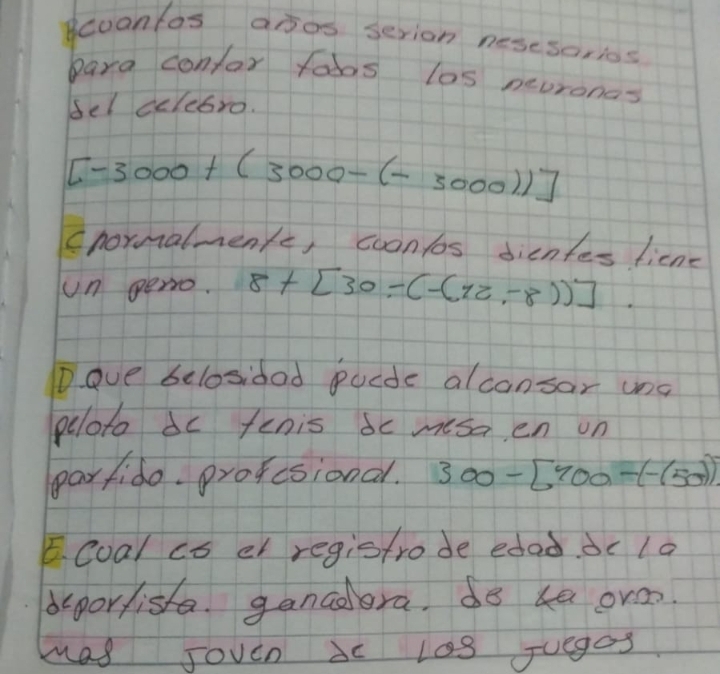 B cuantos años serian nesesarios
para contar todas las neuronas
del celebro.
[-3000 + ( 3000 - (- 3000))]
C normalmente, cuantos dientes tiene
un perro. 8 + [30 - (-(12 - 8))].
D. Que belosidad puede alcansar una
pelota de tenis de mesa en un
partido profesional. 300 - [100 - (-(50))]
E. Cual es el registro de edad de la
deportista ganadora de oro
mas joven de los juegos